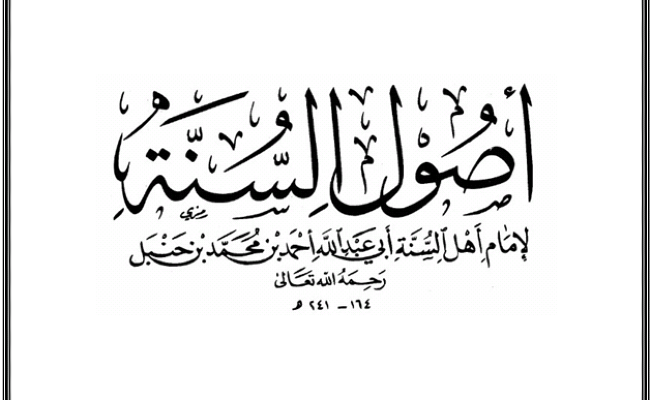 أُصُولُ السُّنَّةِ
لإِمَامِ أَهْلِ السُّنَّةِ أَبِي عَبْدِ اللهِ أَحْمَدَ بْنِ مُحَمَّدِ بْنِ حَنْبَل
رَحِمَهُ اللهُ تَعَالَى
١٦٤ - ٢٤١ هـ